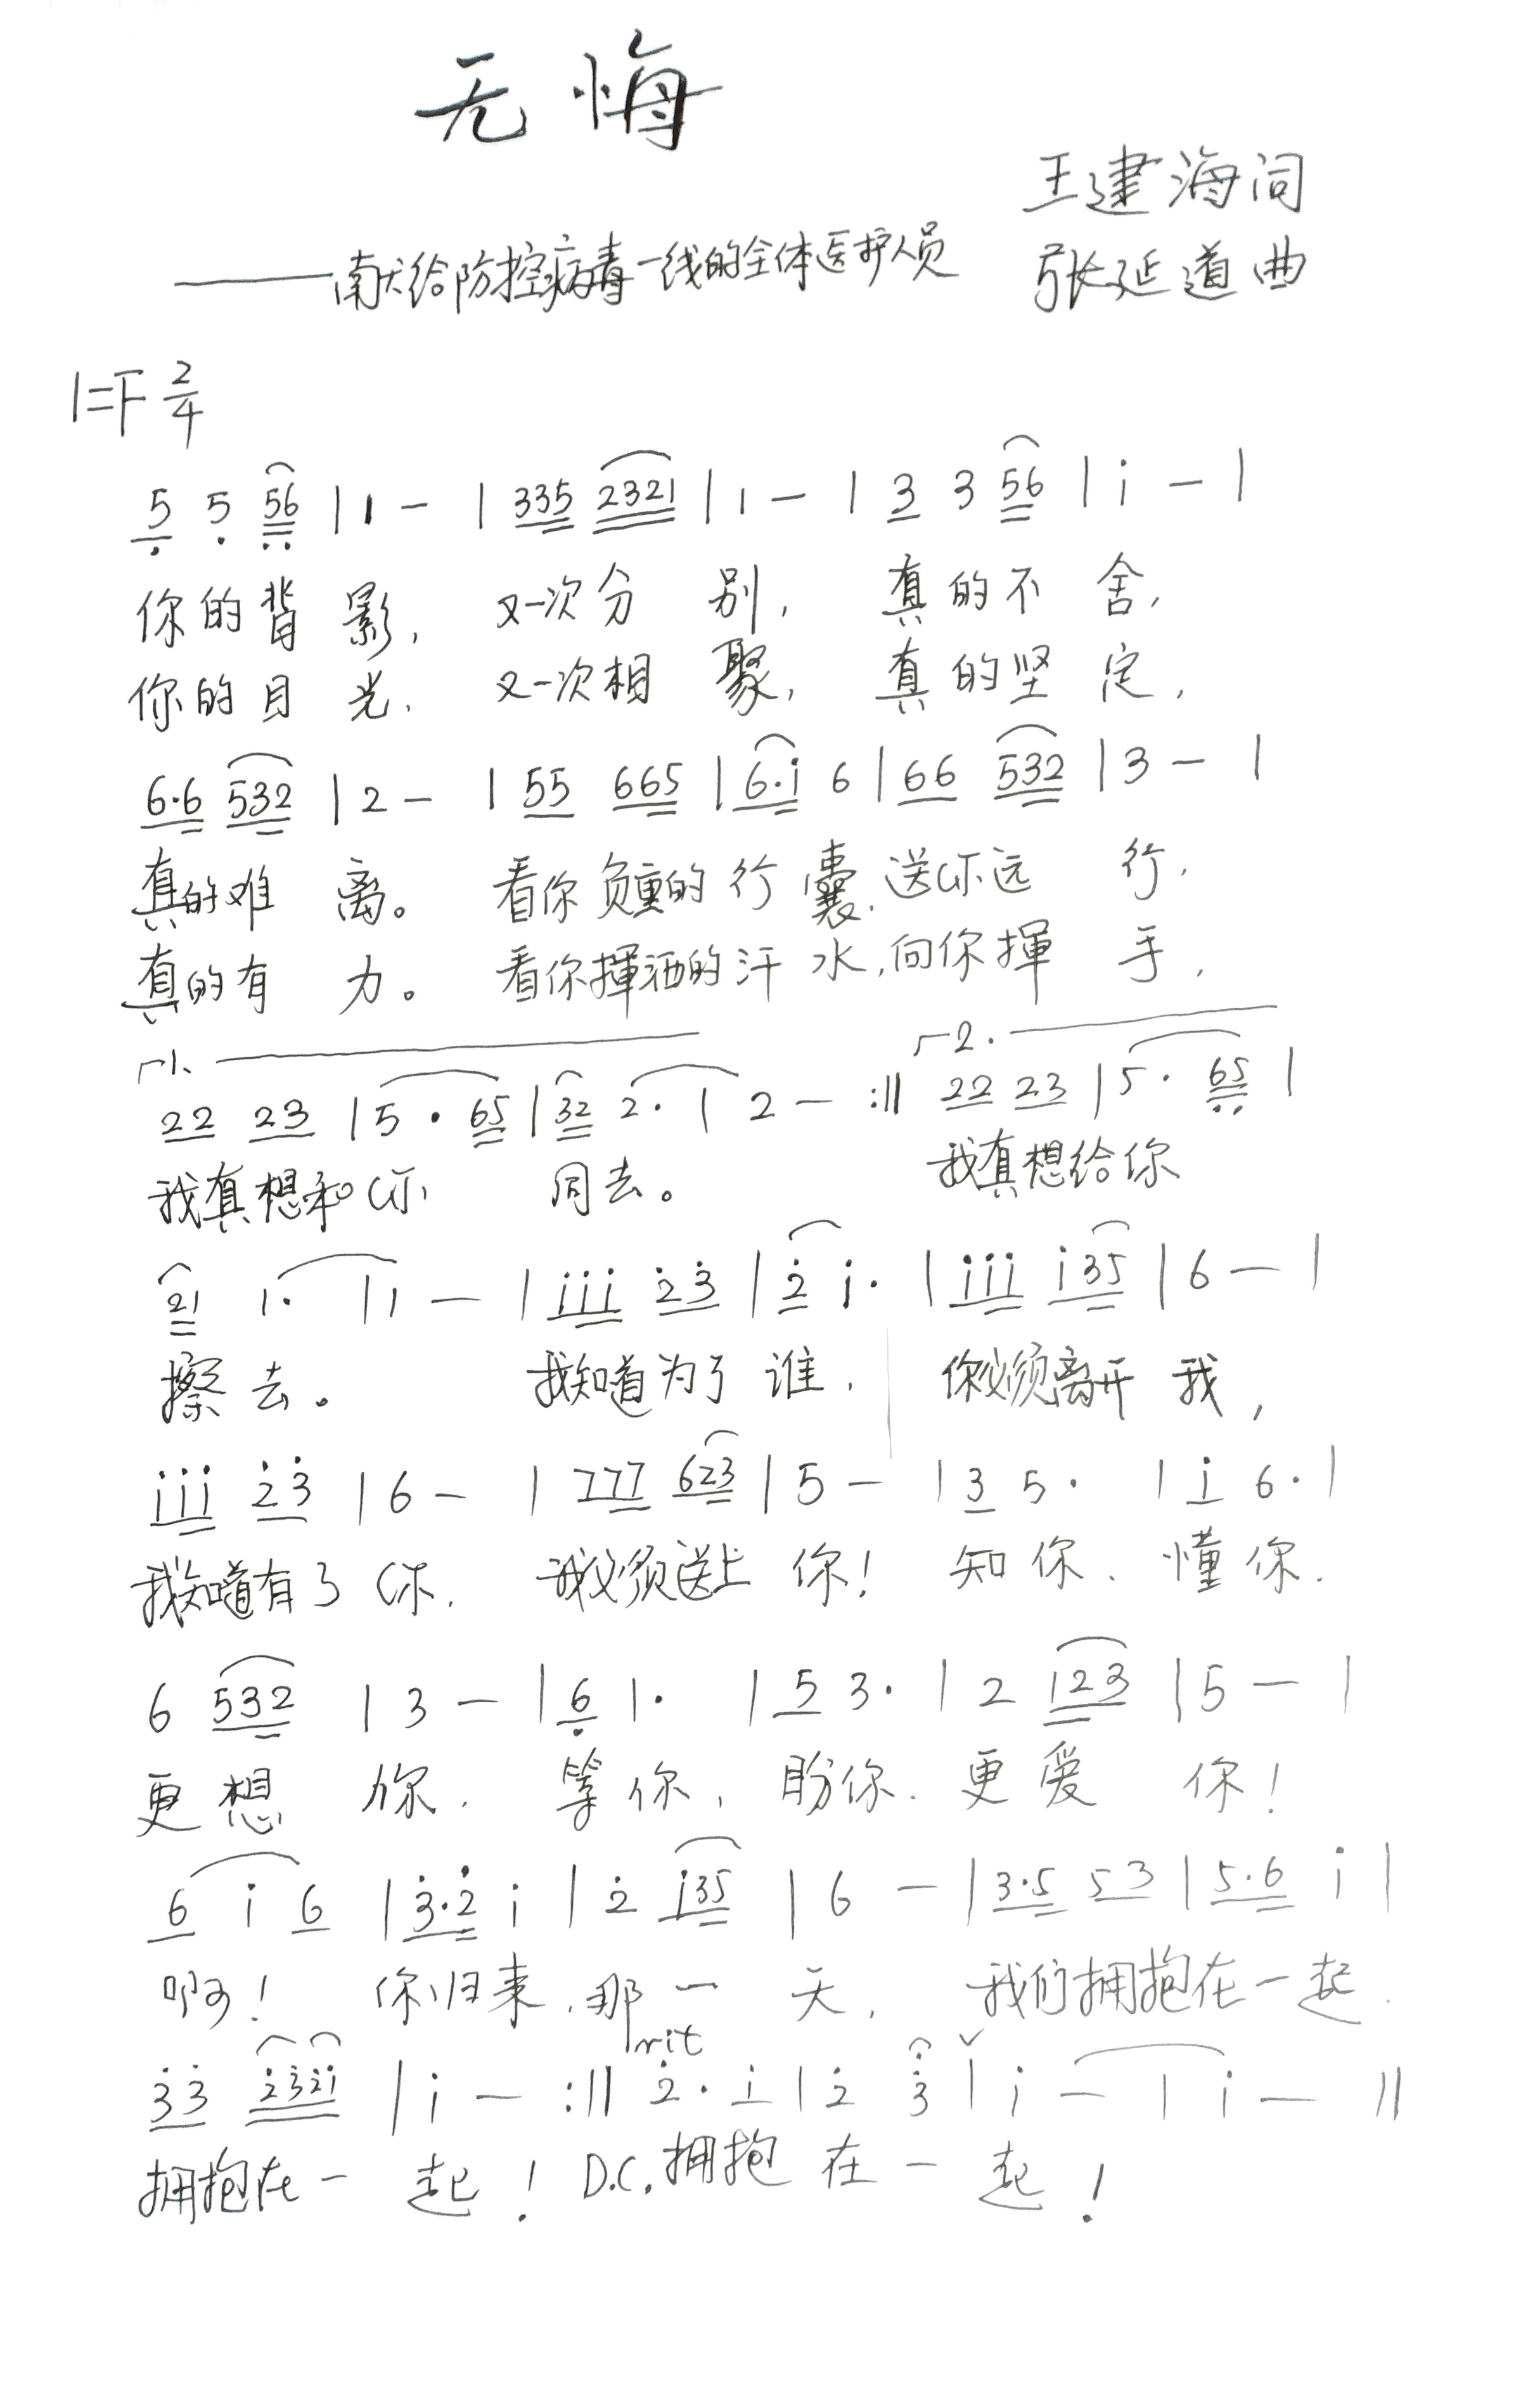 无悔
王建海词
——献给防控病毒一线的全体医护人员
张延道曲
1=F 2/4
5 5 56 | 1 - | 335 2321 | 1 - | 3 3 56 | i - |
你的背影, 又一次分别, 真的不舍,
你的目光, 又一次相聚, 真的坚定,
6·6 532 | 2 - | 55 665 | 6·i 6 | 66 532 | 3 - |
真的难离。 看你负重的行囊, 送你远行,
真的有力。 看你揮洒的汗水, 向你揮手,
1. 2.
22 23 | 5 · 65 | 32 2· | 2 - :|| 22 23 | 5 · 65 |
我真想和你同去。 我真想给你
21 1· | 1 - | iii 23 | 2 i· | iii i35 | 6 - |
擦去。 我知道为了谁, 你必须离开我,
iii 23 | 6 - | 777 623 | 5 - | 3 5· | i 6· |
我知道有了你, 我必须送上你! 知你、懂你.
6 532 | 3 - | 6 1· | 5 3· | 2 123 | 5 - |
更想你, 等你, 盼你. 更爱你!
6 i 6 | 3·2 i | 2 i35 | 6 - | 3·5 53 | 5·6 i |
啊! 你归来, 那一天, 我们拥抱在一起.
rit
33 232i | i - :|| 2· i | 2 3 | i - | i - ||
拥抱在一起! D.C. 拥抱在一起!